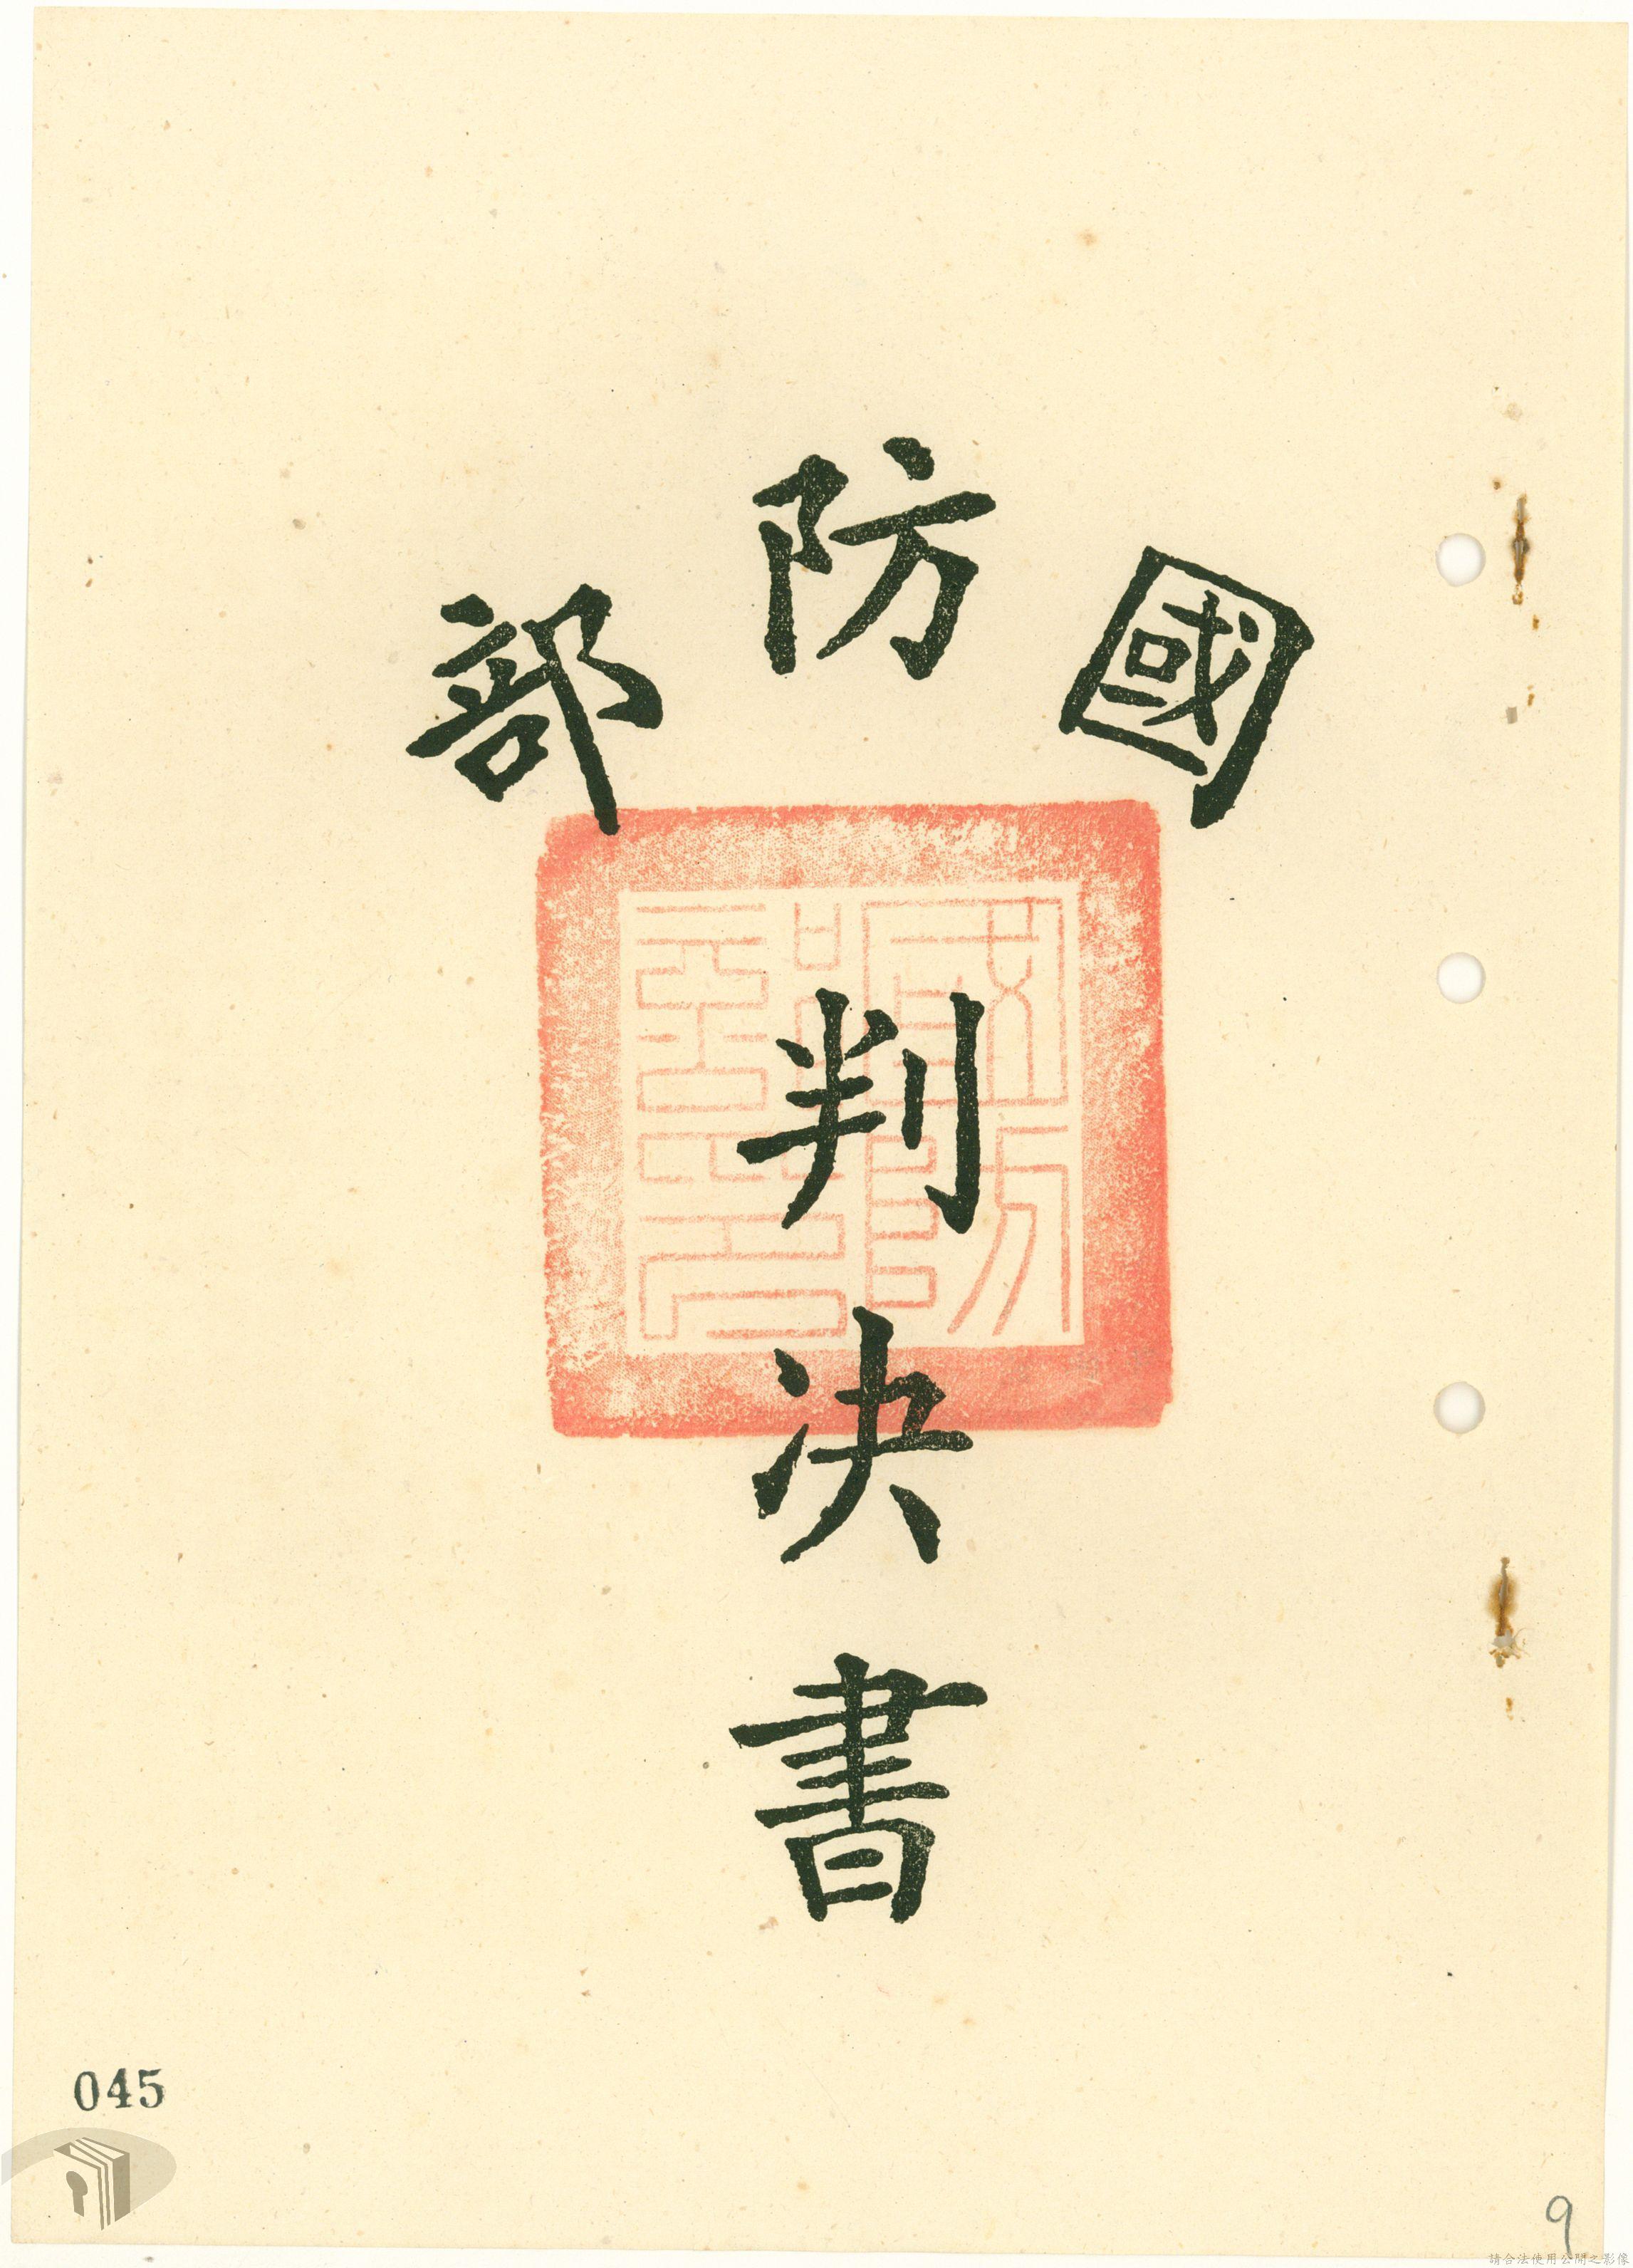 國防部
判決書
國防部印
045
9
請合法使用公開之影像